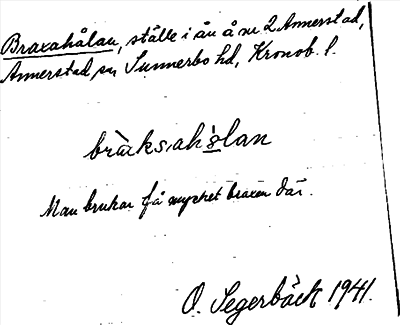 Braxahålan, ställe i ån å nr 2 Annerstad,
Annerstad sn, Sunnerbo hd, Kronob. l.
bràksahò̀lan
Man brukar få mycket braxen där.
O. Segerbäck 1941.